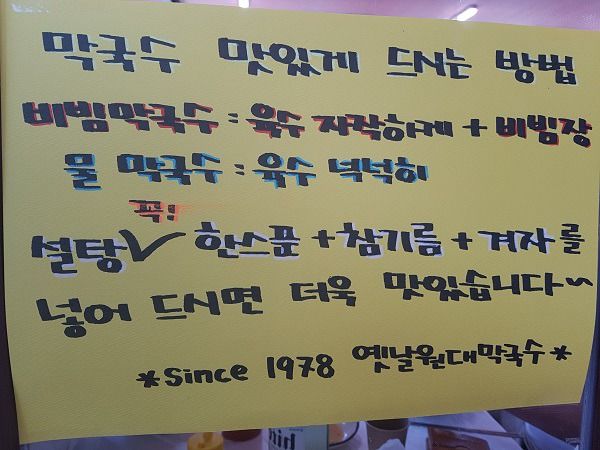 막국수 맛있게 드시는 방법
비빔막국수 : 육수 자작하게 + 비빔장
물 막국수 : 육수 넉넉히
꼭!
설탕 한스푼 + 참기름 + 겨자를
넣어 드시면 더욱 맛있습니다~
*Since 1978 옛날원대막국수*